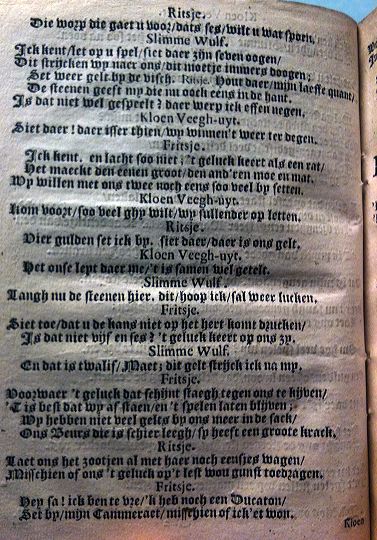 Ritsje.
Die worp die gaet u voor/ dats ses/ wilt u wat sporn.
Slimme Wulf.
Ick kent/ let op u spel/ siet daer zijn seven oogen/
Dit strijcken wy naer ons/ dit moetje immers doogen;
Set weer gelt by de visch. Ritsje. Hout daer/ mijn laeffe quant/
De steenen geeft my die nu oock eens in de hant.
Is dat niet wel gespeelt? daer werp ick essen negen.
Kloen Veegh-uyt.
Siet daer! daer isser thien/ wy winnen't weer ter degen.
Fritsje.
Ick kent, en lacht soo niet; 't geluck keert als een rat/
Het maeckt den eenen groot/ den and'ren moe en mat.
Wy willen met ons twee noch eens soo veel by setten.
Kloen Veegh-uyt.
Kom voort/ soo veel ghy wilt/ wy sullender op letten.
Ritsje.
Vier gulden set ick by. siet daer/ daer is ons gelt.
Kloen Veegh-uyt.
Het onse lept daer me/ 't is samen wel getelt.
Slimme Wulf.
Langh nu de steenen hier. dit/ hoop ick/ sal weer lucken.
Fritsje.
Siet toe/ dat u de kans niet op het hert komt drucken/
Is dat niet vijf en ses? 't geluck keert op ons zy.
Slimme Wulf.
En dat is twalif/ Maet; dit gelt strijck ick na my.
Fritsje.
Voorwaer 't geluck dat schijnt staegh tegen ons te kijven/
'T is best dat wy af staen/ en 't spelen laten blijven;
Wy hebben niet veel gelts by ons meer in de sack/
Ons Beurs die is schier leegh/ sy heeft een groote krack.
Ritsje.
Laet ons het zootjen al met haer noch eensjes wagen/
Misschien of ons 't geluck op't lest wou gunst toedragen.
Fritsje.
Hey sa! ick ben te vre/ 'k heb noch een Ducaton/
Set by/ mijn Cammeraet/ misschien of ick'et won.
Kloen